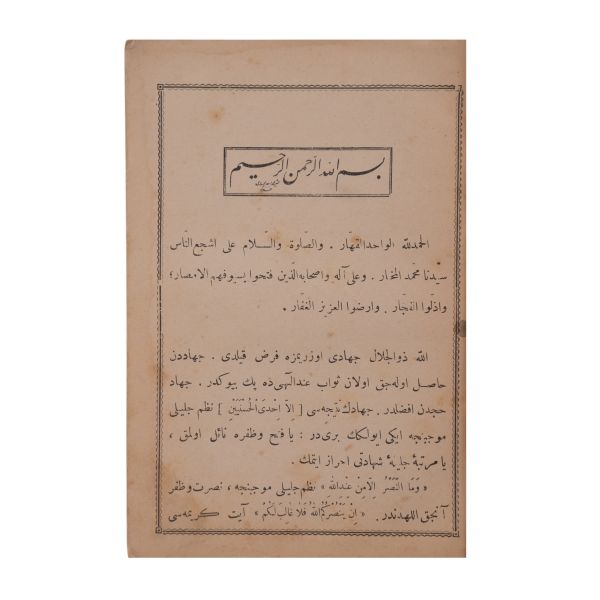 بسم الله الرحمن الرحيم
الحمدلله الواحدالقهّار . والصّلوة والسّلام على اشجع النّاس
سيّدنا محمّد المختار . وعلى آله واصحابه الذين فتحوا بسيوفهم الامصار ؛
واذلّوا الفجّار . وارضوا العزيز الغفّار .
الله ذوالجلال جهادى اوزريمزه فرض قيلدى . جهاددن
حاصل اوله جق اولان ثواب عندالهى ده پك بيوكدر . جهاد
حجدن افضلدر . جهادك نتيجه سى [ اِلاّ اِحْدَى الْحُسْنَيَيْنِ ] نظم جليلى
موجبنجه ايكى ايولكك برى در : يا فتح وظفره نائل اولمق ،
يا مرتبهٔ جليلهٔ شهادتى احراز ايتمك .
« وَمَا النَّصْرُ اِلاّمِنْ عِنْدِاللهِ » نظم جليلى موجبنجه ، نصرت وظفر
آنجق اللهدندر . « اِنْ يَنْصُرْكُمُ اللهُ فَلَا غَالِبَ لَكُمْ » آيت كريمه سى